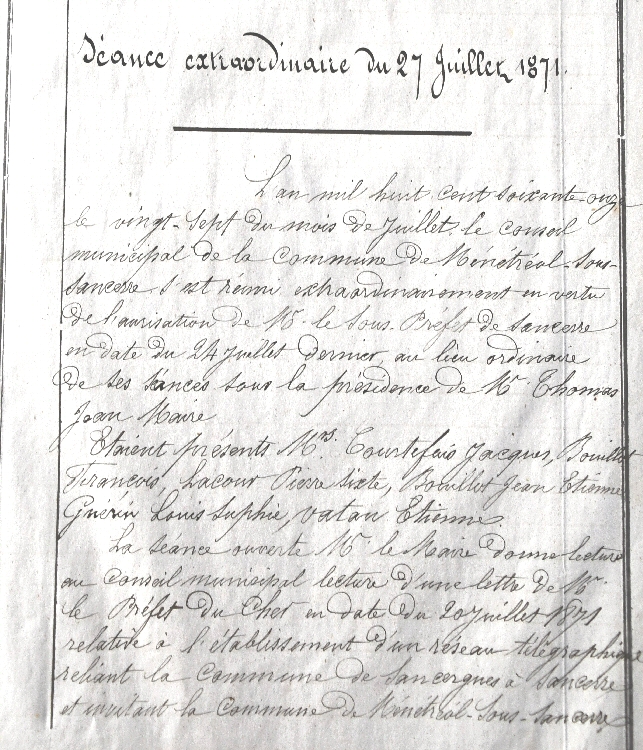 Séance extraordinaire du 27 Juillet 1871.
L'an mil huit cent soixante-onze
le vingt-sept du mois de Juillet, le conseil
municipal de la commune de Ménétréol-sous-
Sancerre s'est réuni extraordinairement en vertu
de l'aurisation de Mr. le Sous-Préfet de Sancerre
en date du 24 Juillet dernier, au lieu ordinaire
de ses séances sous la présidence de Mr. Thomas
Jean Maire
Etaient présents Mrs. Courtefois Jacques, Bouillot
François, Lacour Pierre Sixte, Bouillot Jean Etienne
Guérin Louis Suphie, Vatan Etienne.
La séance ouverte Mr. le Maire donne lecture
au Conseil municipal lecture d'une lettre de Mr.
le Préfet du Cher en date du 20 Juillet 1871
relative à l'établissement d'un réseau télégraphique
reliant la Commune de Sancergues à Sancerre
et invitant la Commune de Ménétréol-sous-Sancerre